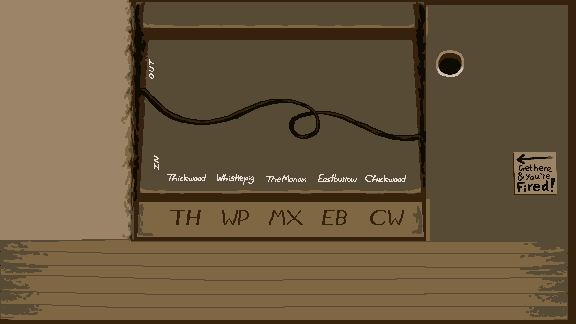 OUT
IN
Thickwood Whistlepig The Manor Eastburrow Chuckwood
TH WP MX EB CW
Get here
& you're
Fired!